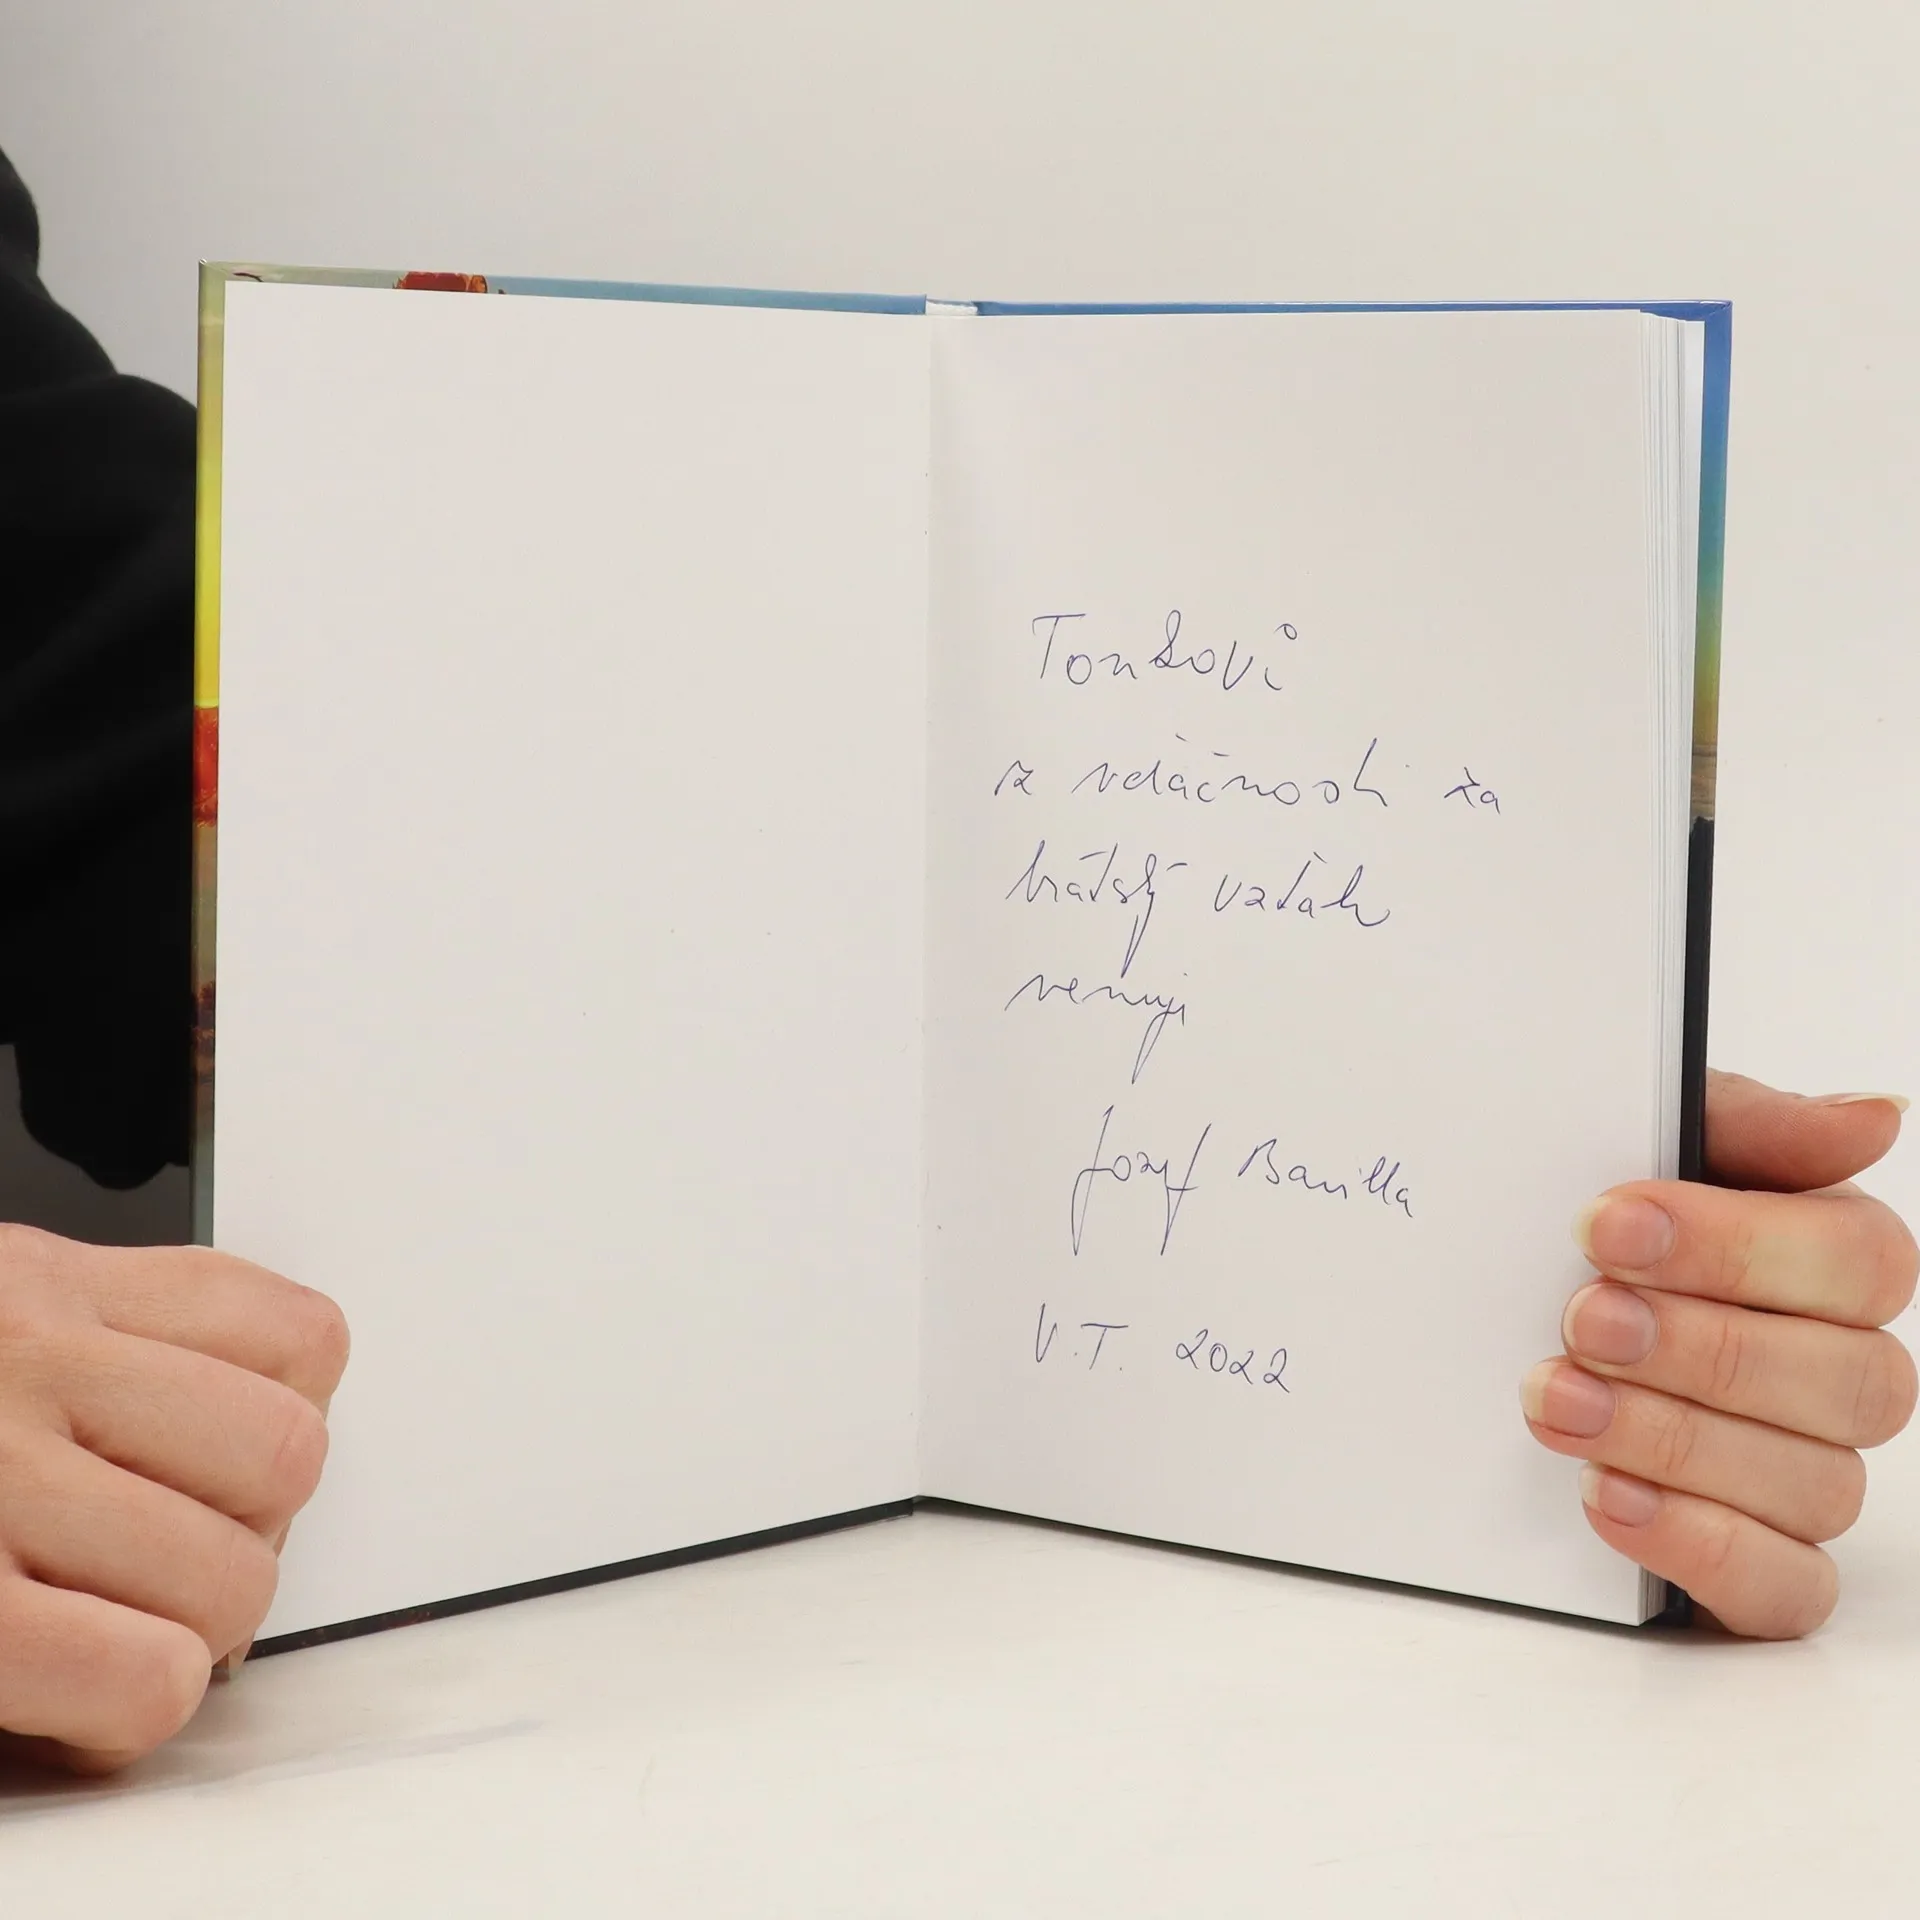 Tonkovi
z vďačnosti za
bratský vzťah
venuje
Jozef Banilla
V.T. 2022